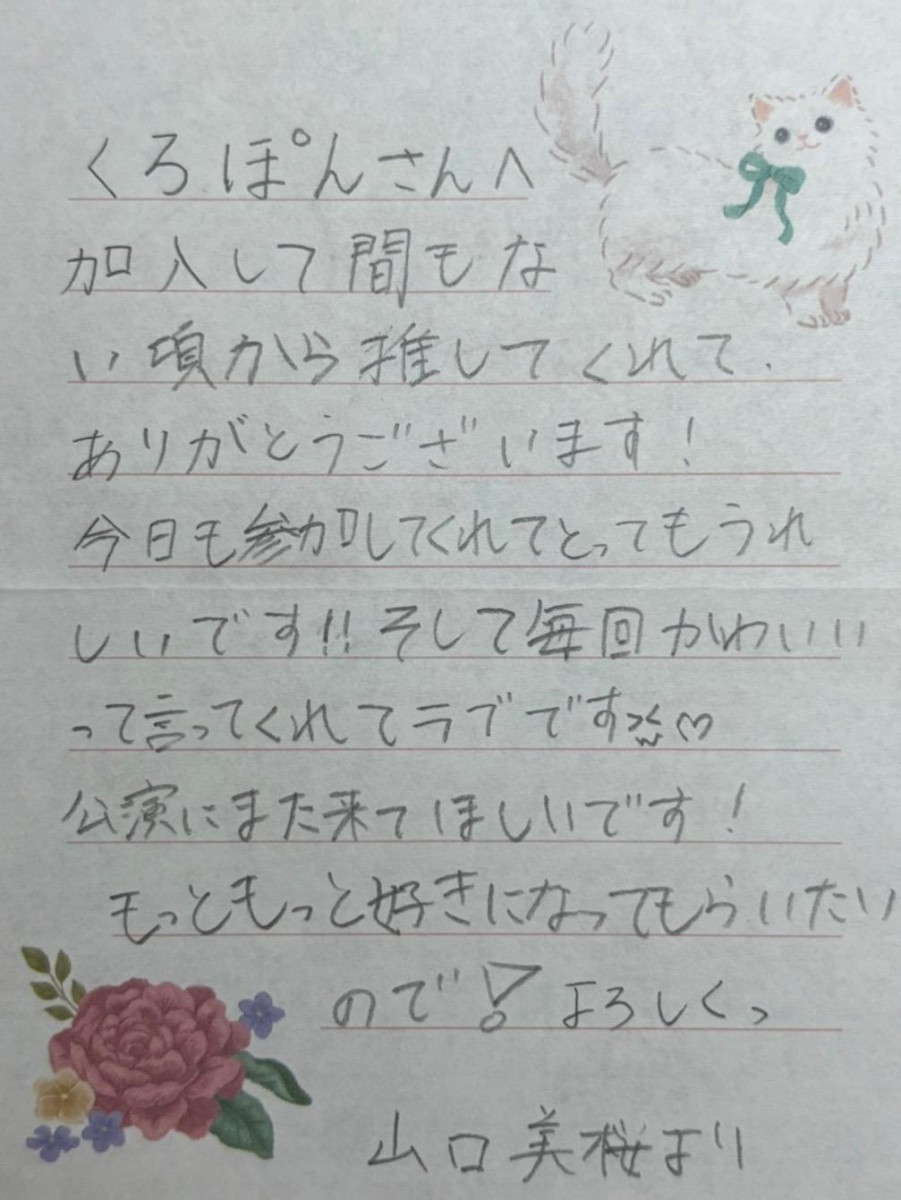 くろぽんさんへ
加入して間もな
い頃から推してくれて、
ありがとうございます！
今日も参加してくれてとってもうれ
しいです!!そして毎回かわいい
って言ってくれてラブです><♡
公演にまた来てほしいです！
もっともっと好きになってもらいたい
ので！よろしくっ
山口美桜より